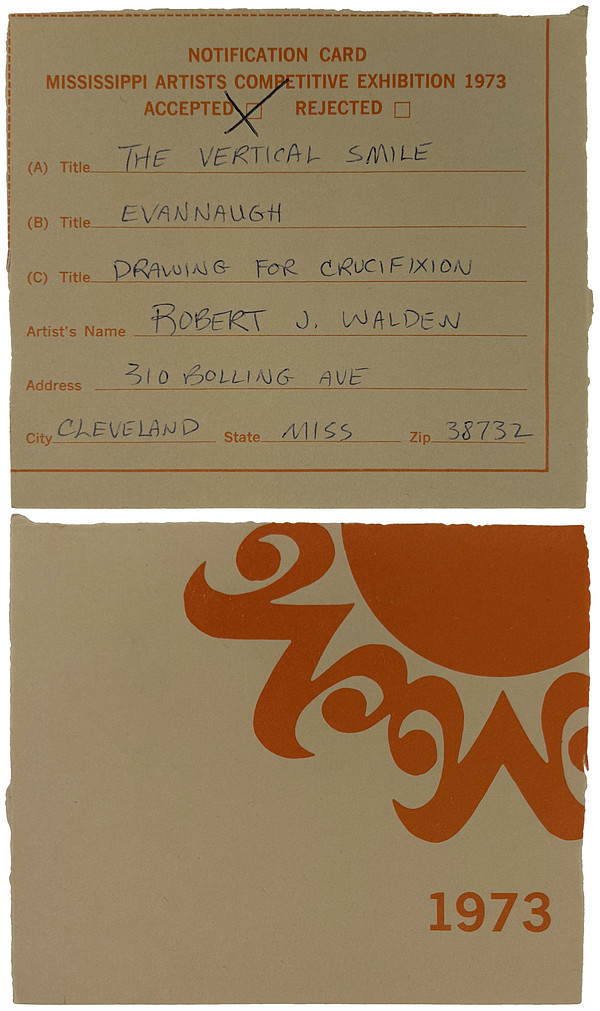 NOTIFICATION CARD
MISSISSIPPI ARTISTS COMPETITIVE EXHIBITION 1973
ACCEPTED REJECTED
(A) Title THE VERTICAL SMILE
(B) Title EVANNAUGH
(C) Title DRAWING FOR CRUCIFIXION
Artist's Name ROBERT J. WALDEN
Address 310 BOLLING AVE
City CLEVELAND State MISS Zip 38732
1973